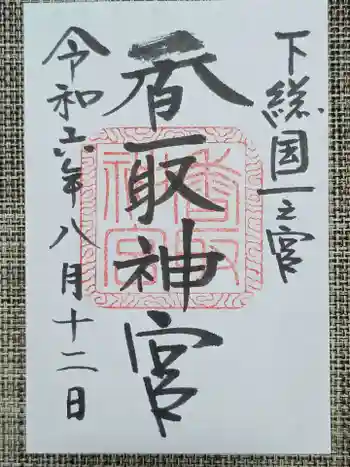 下総国一之宮
香取神宮
香取神宮
令和六年八月十二日